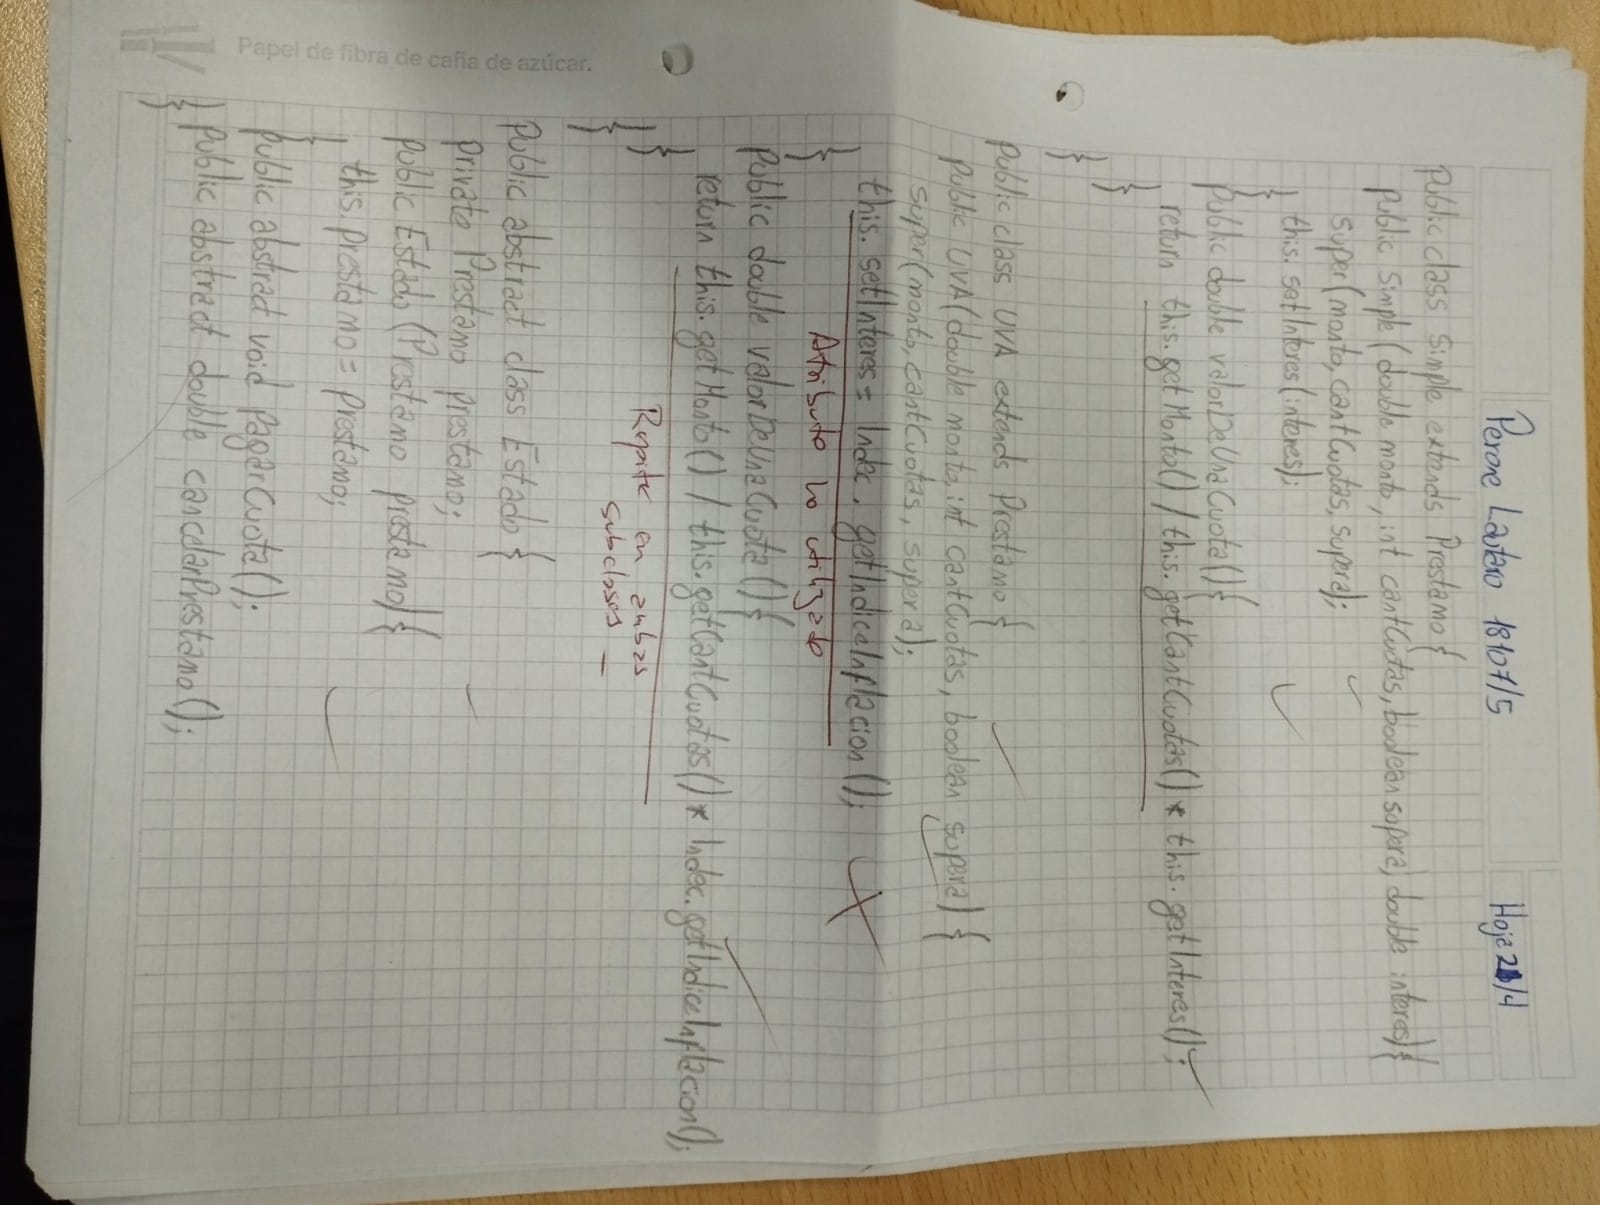 Perone Lautaro 18107/5
Hoja 2/4
public class Simple extends Prestamo {
public Simple (double monto, int cantCuotas, boolean supera, double interes) {
super(monto, cantCuotas, supera);
this.setInteres(interes);
}
public double valorDeUnaCuota() {
return this.getMonto() / this.getCantCuotas() * this.getInteres();
}
}
public class UVA extends Prestamo {
public UVA(double monto, int cantCuotas, boolean supera) {
super(monto, cantCuotas, supera);
this.setInteres = Indec.getIndiceInflacion();
Atributo no utilizado
}
public double valorDeUnaCuota() {
return this.getMonto() / this.getCantCuotas() * Indec.getIndiceInflacion();
Repite en ambas
subclases
}
}
public abstract class Estado {
private Prestamo prestamo;
public Estado (Prestamo prestamo) {
this.prestamo = prestamo;
}
public abstract void pagarCuota();
public abstract double cancelarPrestamo();
}
Papel de fibra de caña de azúcar.